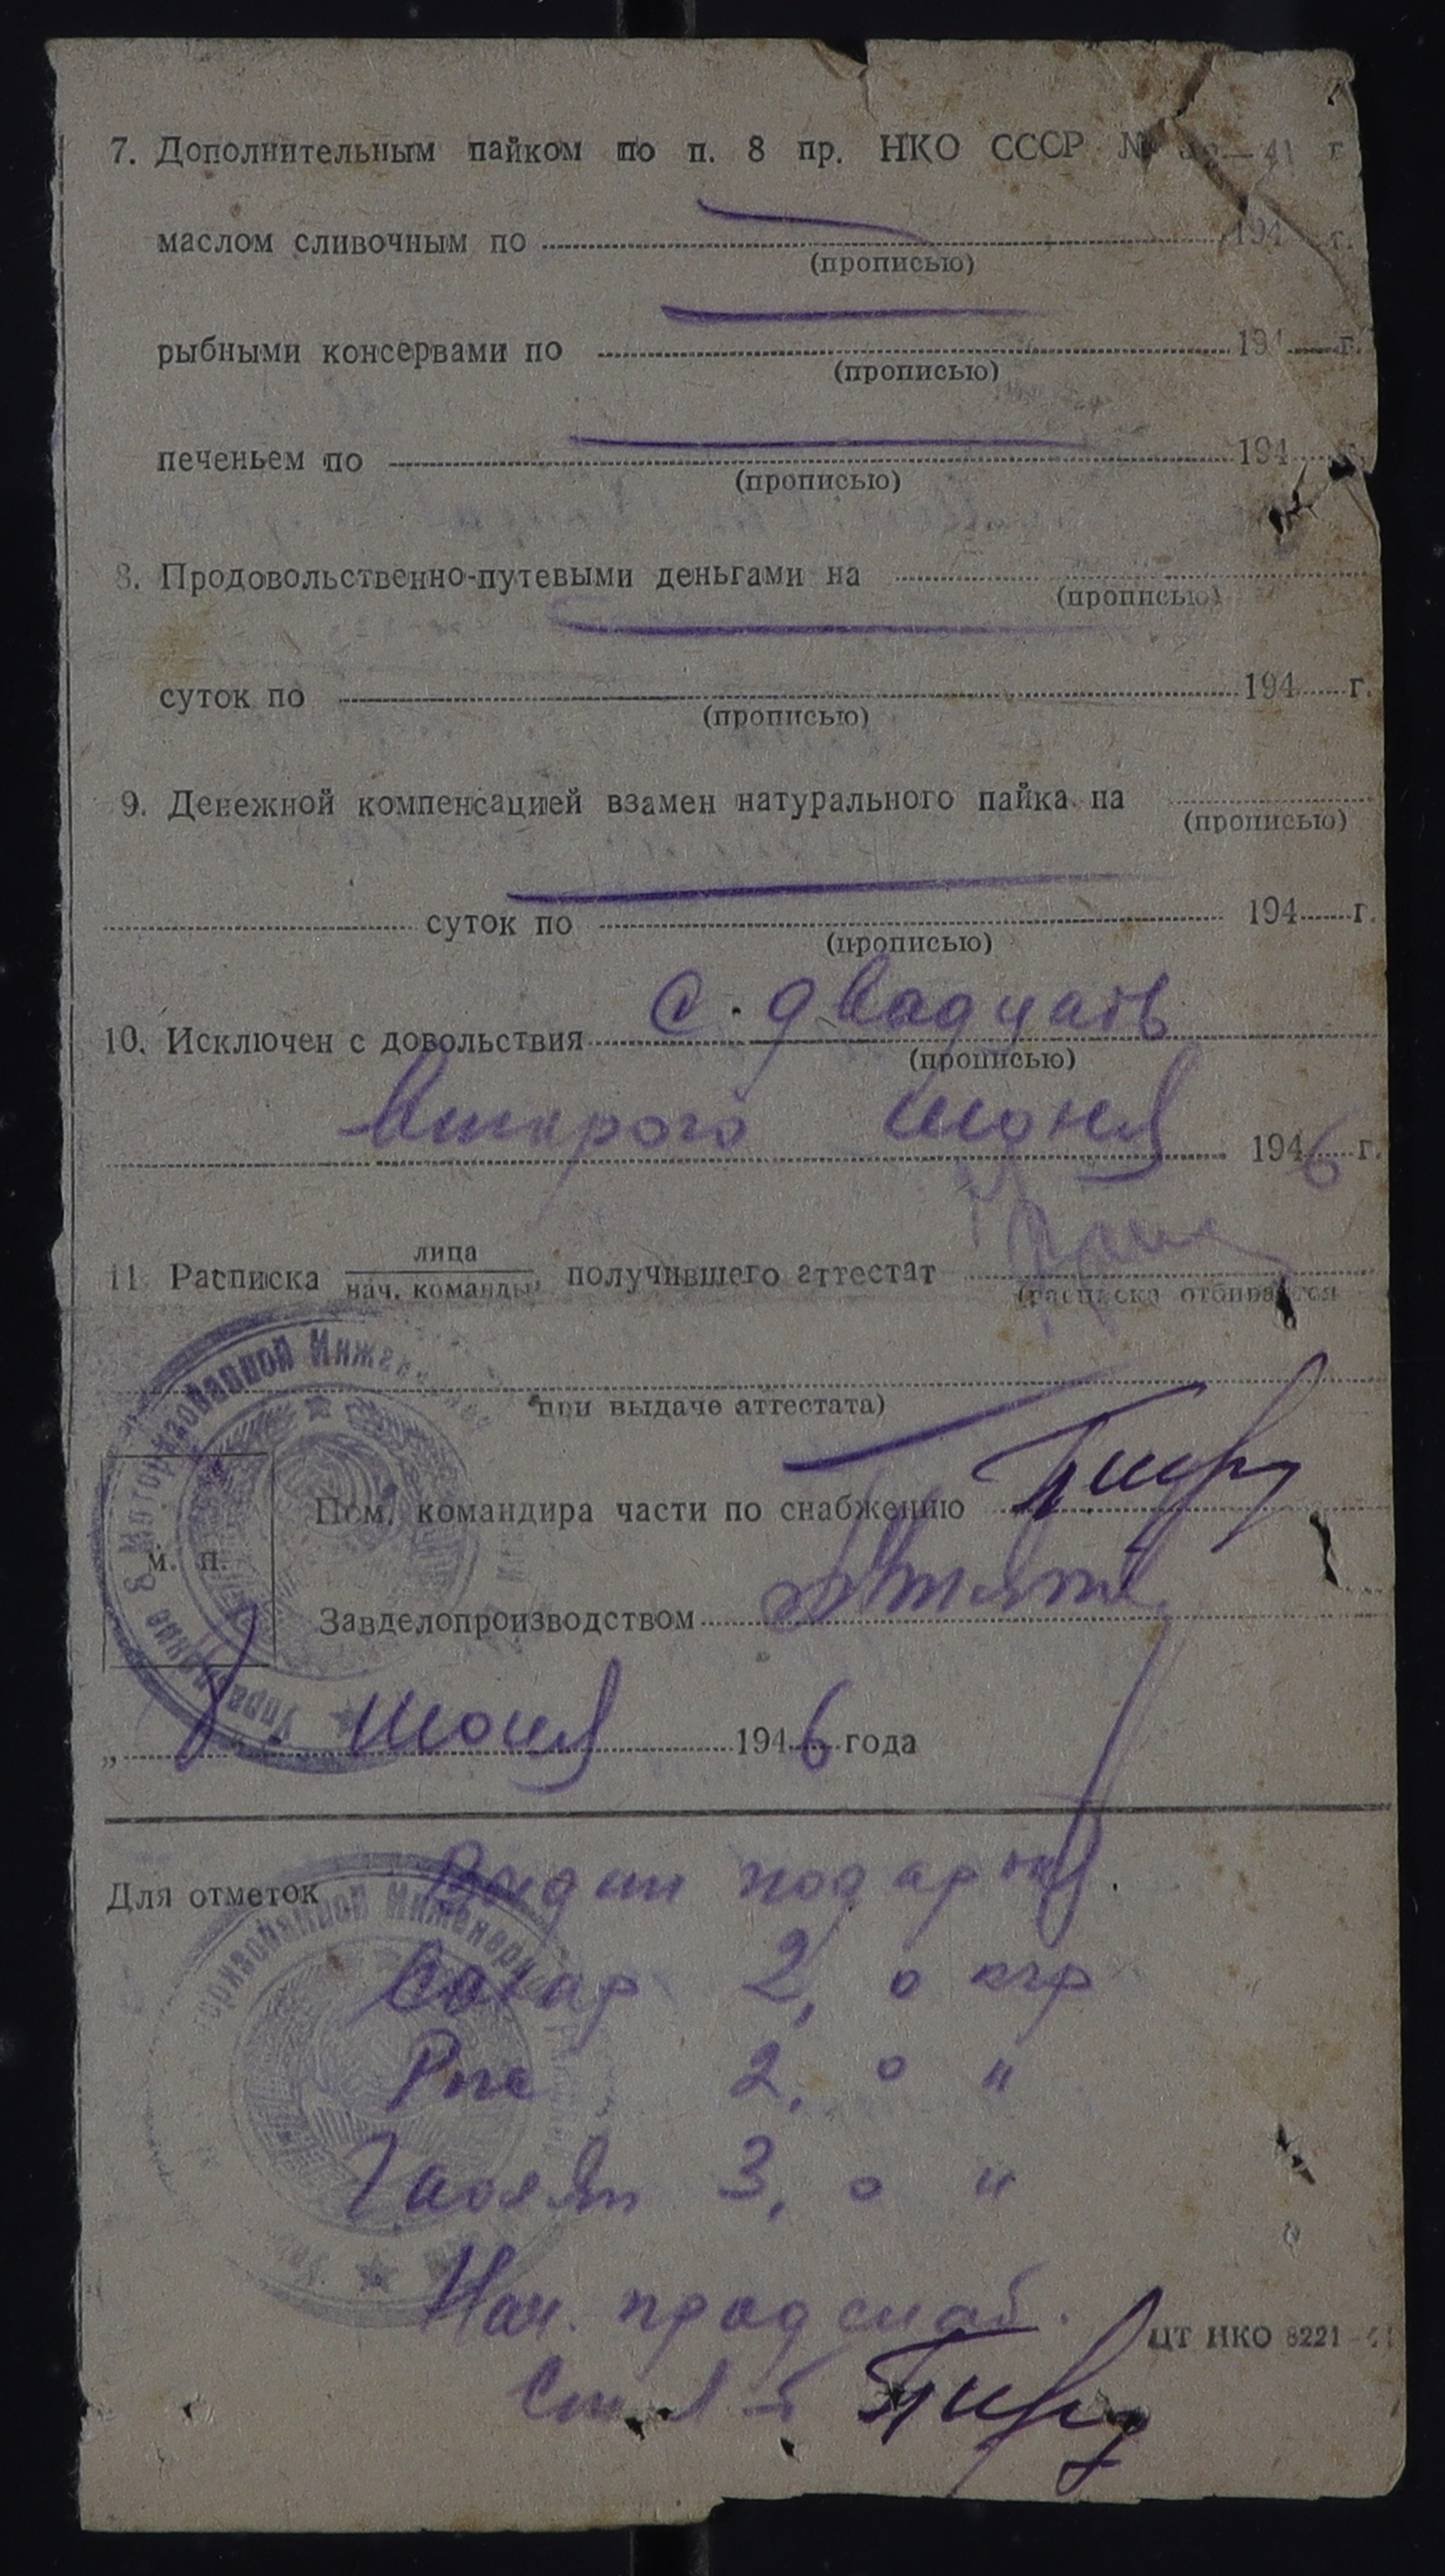 7. Дополнительным пайком по п. 8 пр. НКО СССР № —41 г.
маслом сливочным по 194 г.
(прописью)
рыбными консервами по 194 г.
(прописью)
печеньем по 194
(прописью)
8. Продовольственно-путевыми деньгами на
(прописью)
суток по 194 г.
(прописью)
9. Денежной компенсацией взамен натурального пайка на
(прописью)
суток по 194 г.
(прописью)
10. Исключен с довольствия с. двадцать
(прописью)
второго июня 1946 г.
11. Расписка лица
нач. команды, получившего аттестат
(расписка отбирается
при выдаче аттестата)
Пом. командира части по снабжению
м. п.
Завделопроизводством
" июня 1946 года
Для отметок Выдан подарок.
Сахар 2,0 кгр
Рис 2,0 "
3,0 "
Нач. продснаб.
ЦТ НКО 8221-41
Ст. л-т
Управление 8 Моторизованной Инженерной